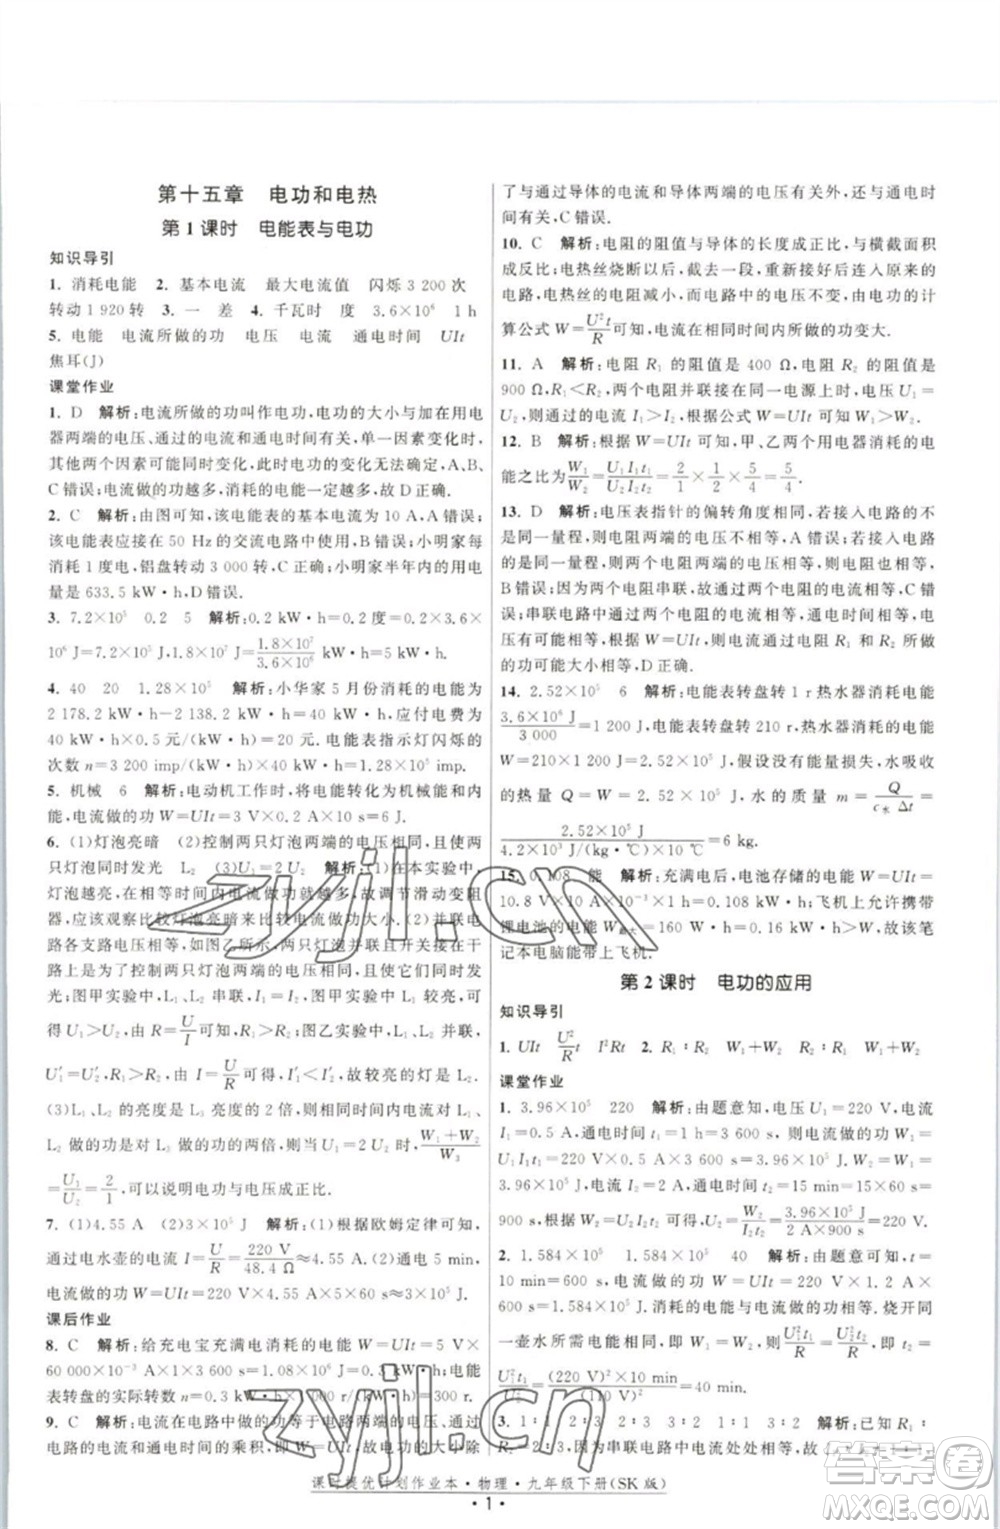 第十五章 电功和电热
第 1 课时 电能表与电功
知识导引
1. 消耗电能 2. 基本电流 最大电流值 闪烁 3 200 次
转动 1 920 转 3. 一 差 4. 千瓦时 度 3.6×10⁶ 1 h
5. 电能 电流所做的功 电压 电流 通电时间 UIt
焦耳(J)
课堂作业
1. D 解析:电流所做的功叫作电功,电功的大小与加在用电
器两端的电压、通过的电流和通电时间都有关,一个因素变化,
其他两个因素可能同时变化,电功的变化无法确定,A、B、
C 错误;电流做的功越多,消耗的电能一定越多,故 D 正确.
2. C 解析:由图可知,该电能表的基本电流为 10 A,A 错误;
该电能表应接在 50 Hz 的交流电路中使用,B 错误;小明家每
消耗 1 度电,铝盘转动 3 000 转,C 正确;小明家半年内的用电
量为 633.5 kW·h,D 错误.
3. 7.2×10⁵ 0.2 5 解析:0.2 kW·h=0.2×3.6×
10⁶ J=7.2×10⁵ J,1.8×10⁷ J=1.8×10⁷/3.6×10⁶ kW·h=5 kW·h.
4. 40 20 1.28×10⁵ 解析:小华家 5 月份消耗的电能为
2 178.2 kW·h-2 138.2 kW·h=40 kW·h,应付电费为
40 kW·h×0.5 元/(kW·h)=20 元.电能表指示灯闪烁的
次数 n=3 200 imp/(kW·h)×40 kW·h=1.28×10⁵ imp.
5. 机械 6 解析:电动机工作时,将电能转化为机械能和内
能,电流做的功为 W=UIt=3 V×0.4 A×5 s=6 J.
6. (1)灯泡亮暗 (2)控制两只灯泡两端的电压相同,且使两
只灯泡同时发光 (3)U₁=2U₂ 解析:(1)在本实验中,
灯泡越亮,相同时间内,电流做功越多,故在调节滑动变阻
器,应该观察比较灯泡亮暗来比较电流做功大小.(2)并联电
路各支路电压相等,如图乙所示,两只灯泡并联且开关接在干
路上是为了控制两只灯泡两端的电压相等,且使灯泡同时发
光;图甲实验中,灯 L₁、L₂ 串联,I₁=I₂,灯 L₁ 较亮,可得
U₁>U₂,由 R=U/I可得,R₁>R₂;图乙实验中,L₁、L₂ 并联,
U′₁=U′₂,R₁>R₂,由 I=U/R可得,I′₁<I′₂,故较亮的灯是 L₂.
(3)L₁、L₂ 的亮度是 L₃ 亮度的 2 倍,所以相同时间内,L₁、
L₂ 做的功是 L₃ 做的功的两倍,则当 U₁=2U₂ 时,W₁+W₂/W₃
=U₁/U₂=2/1,可以说明电功与电压成正比.
7. (1)4.55 A (2)3×10⁵ J 解析:(1)根据欧姆定律可知,
通过电水壶的电流 I=U/R=220 V/48.4 Ω≈4.55 A.(2)通电 5 min,
电流做的功 W=UIt=220 V×4.55 A×5×60 s≈3×10⁵ J.
课后作业
8. C 解析:给充电宝充满电消耗的电能 W=UIt=5 V×
60 000×10⁻³ A×3 600 s=1.08×10⁶ J=0.3 kW·h;电能
表转盘的实际转数 n=0.3 kW·h×1 000 r/(kW·h)=300 r.
9. C 解析:电流在电路中做的功等于电路两端的电压、通过
电路的电流和通电时间的乘积,即 W=UIt,故电功的大小除
了与通过导体的电流和导体两端的电压有关外,还与通电时
间的长短有关,C 错误.
10. C 解析:电阻的阻值与导体的长度成正比,与横截面积
成反比;电热丝烧断后,截去一段,重新接好后接入原来的
电路,电热丝的电阻减小,而电路中的电压不变,由电功的计
算公式 W=U²t/R可知,电流在相同时间内所做的功变大.
11. A 解析:电阻 R₁ 的阻值是 400 Ω,电阻 R₂ 的阻值是
900 Ω,R₁<R₂,两个电阻并联接在同一电源上,电压 U₁=
U₂,则通过的电流 I₁>I₂,根据公式 W=UIt 可知 W₁>W₂.
12. B 解析:根据 W=UIt 可知,甲、乙两个用电器消耗的电
能之比W₁/W₂=U₁I₁t₁/U₂I₂t₂=2/1×1/2×5/4=5/4.
13. D 解析:电压表指针的偏转角度相同,若接入电路的不
是同一量程,则电阻两端的电压不相等,A 错误;若接入电路的
是同一量程,则电阻两端的电压相等,因为两个电阻阻值不
同,B 错误;因为两个电阻串联,所以通过两个电阻的电流相等,C
错误;串联电路中通过两个电阻的电流、通电时间相等,若
电压有可能相等,根据 W=UIt,则电流通过电阻 R₁ 和 R₂ 所做
的功大小可能相等,D 正确.
14. 2.52×10⁵ 6 解析:电能表转盘转 1 r,热水器消耗电能
3.6×10⁶ J/3 000=1 200 J,电能表转盘转 210 r,热水器消耗的电能
W=210×1 200 J=2.52×10⁵ J,不计能量损失,水吸收
的热量 Q=W=2.52×10⁵ J,水的质量 m=Q/c水Δt=
2.52×10⁵ J/4.2×10³ J/(kg·℃)×10 ℃=6 kg.
15. 0.108 能 解析:充满电后,电池存储的电能 W=UIt=
10.8 V×10 A×1 h=0.108 kW·h;飞机上允许携带
锂电池的电能 W最大=160 W·h=0.16 kW·h,故该笔
记本电脑能带上飞机.
第 2 课时 电功的应用
知识导引
1. UIt U²/R t I²Rt 2. R₁∶R₂ W₁+W₂ R₂∶R₁ W₁+W₂
课堂作业
1. 3.96×10⁵ 220 解析:由题意知,电压 U₁=220 V,电流
I₁=0.5 A,通电时间 t₁=1 h=3 600 s,则电流做的功 W₁=
U₁I₁t₁=220 V×0.5 A×3 600 s=3.96×10⁵ J.当电流做功 W₂=
3.96×10⁵ J,电流 I₂=2 A,通电时间 t₂=15 min=15×60 s=
900 s,则电压 U₂=W₂/I₂t₂=3.96×10⁵ J/2 A×900 s=220 V.
2. 1.584×10⁵ 1.584×10⁵ 40 解析:由题意可知,t=
10 min=600 s,则电流做的功 W=UIt=220 V×1.2 A×
600 s=1.584×10⁵ J,消耗的电能为 1.584×10⁵ J.烧开同
一壶水所需电能相同,即 W=W₁,即U²/R t=U₁²/R t₁,则 t₁=
U²t/U₁²=(220 V)²×10 min/(110 V)²=40 min.
3. 1∶1 1∶2 1∶2 1∶2 解析:已知 R₁∶
R₂=2∶3,因为串联电路中电流处处相等,所以 I₁∶I₂=1∶
课时提优计划作业本·物理·九年级下册(SK 版)
· 1 ·
zyjl.cn
zyjl.cn
作业精灵